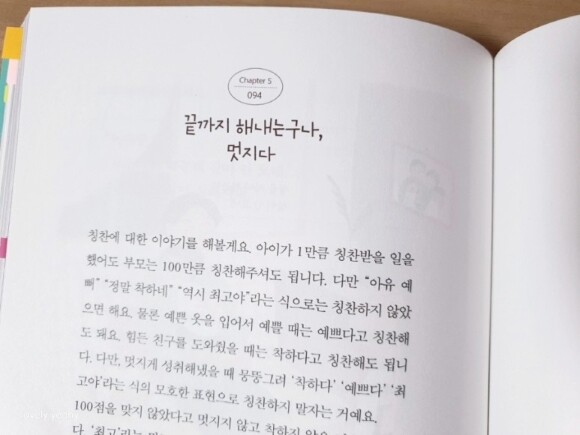 Chapter 5
094
끝까지 해내는구나,
멋지다
칭찬에 대한 이야기를 해볼게요. 아이가 1만큼 칭찬받을 일을
했어도 부모는 100만큼 칭찬해주셔도 됩니다. 다만 “아유 예
뻐” “정말 착하네” “역시 최고야”라는 식으로는 칭찬하지 않았
으면 해요. 물론 예쁜 옷을 입어서 예쁠 때는 예쁘다고 칭찬해
도 돼요. 힘든 친구를 도와줬을 때는 착하다고 칭찬해도 됩니
다. 다만, 멋지게 성취해냈을 때 뭉뚱그려 ‘착하다’ ‘예쁘다’ ‘최
고야’라는 식의 모호한 표현으로 칭찬하지 말자는 거예요.
100점을 맞지 않았다고 멋지지 않고 착하지 않은
다. ‘최고’라는